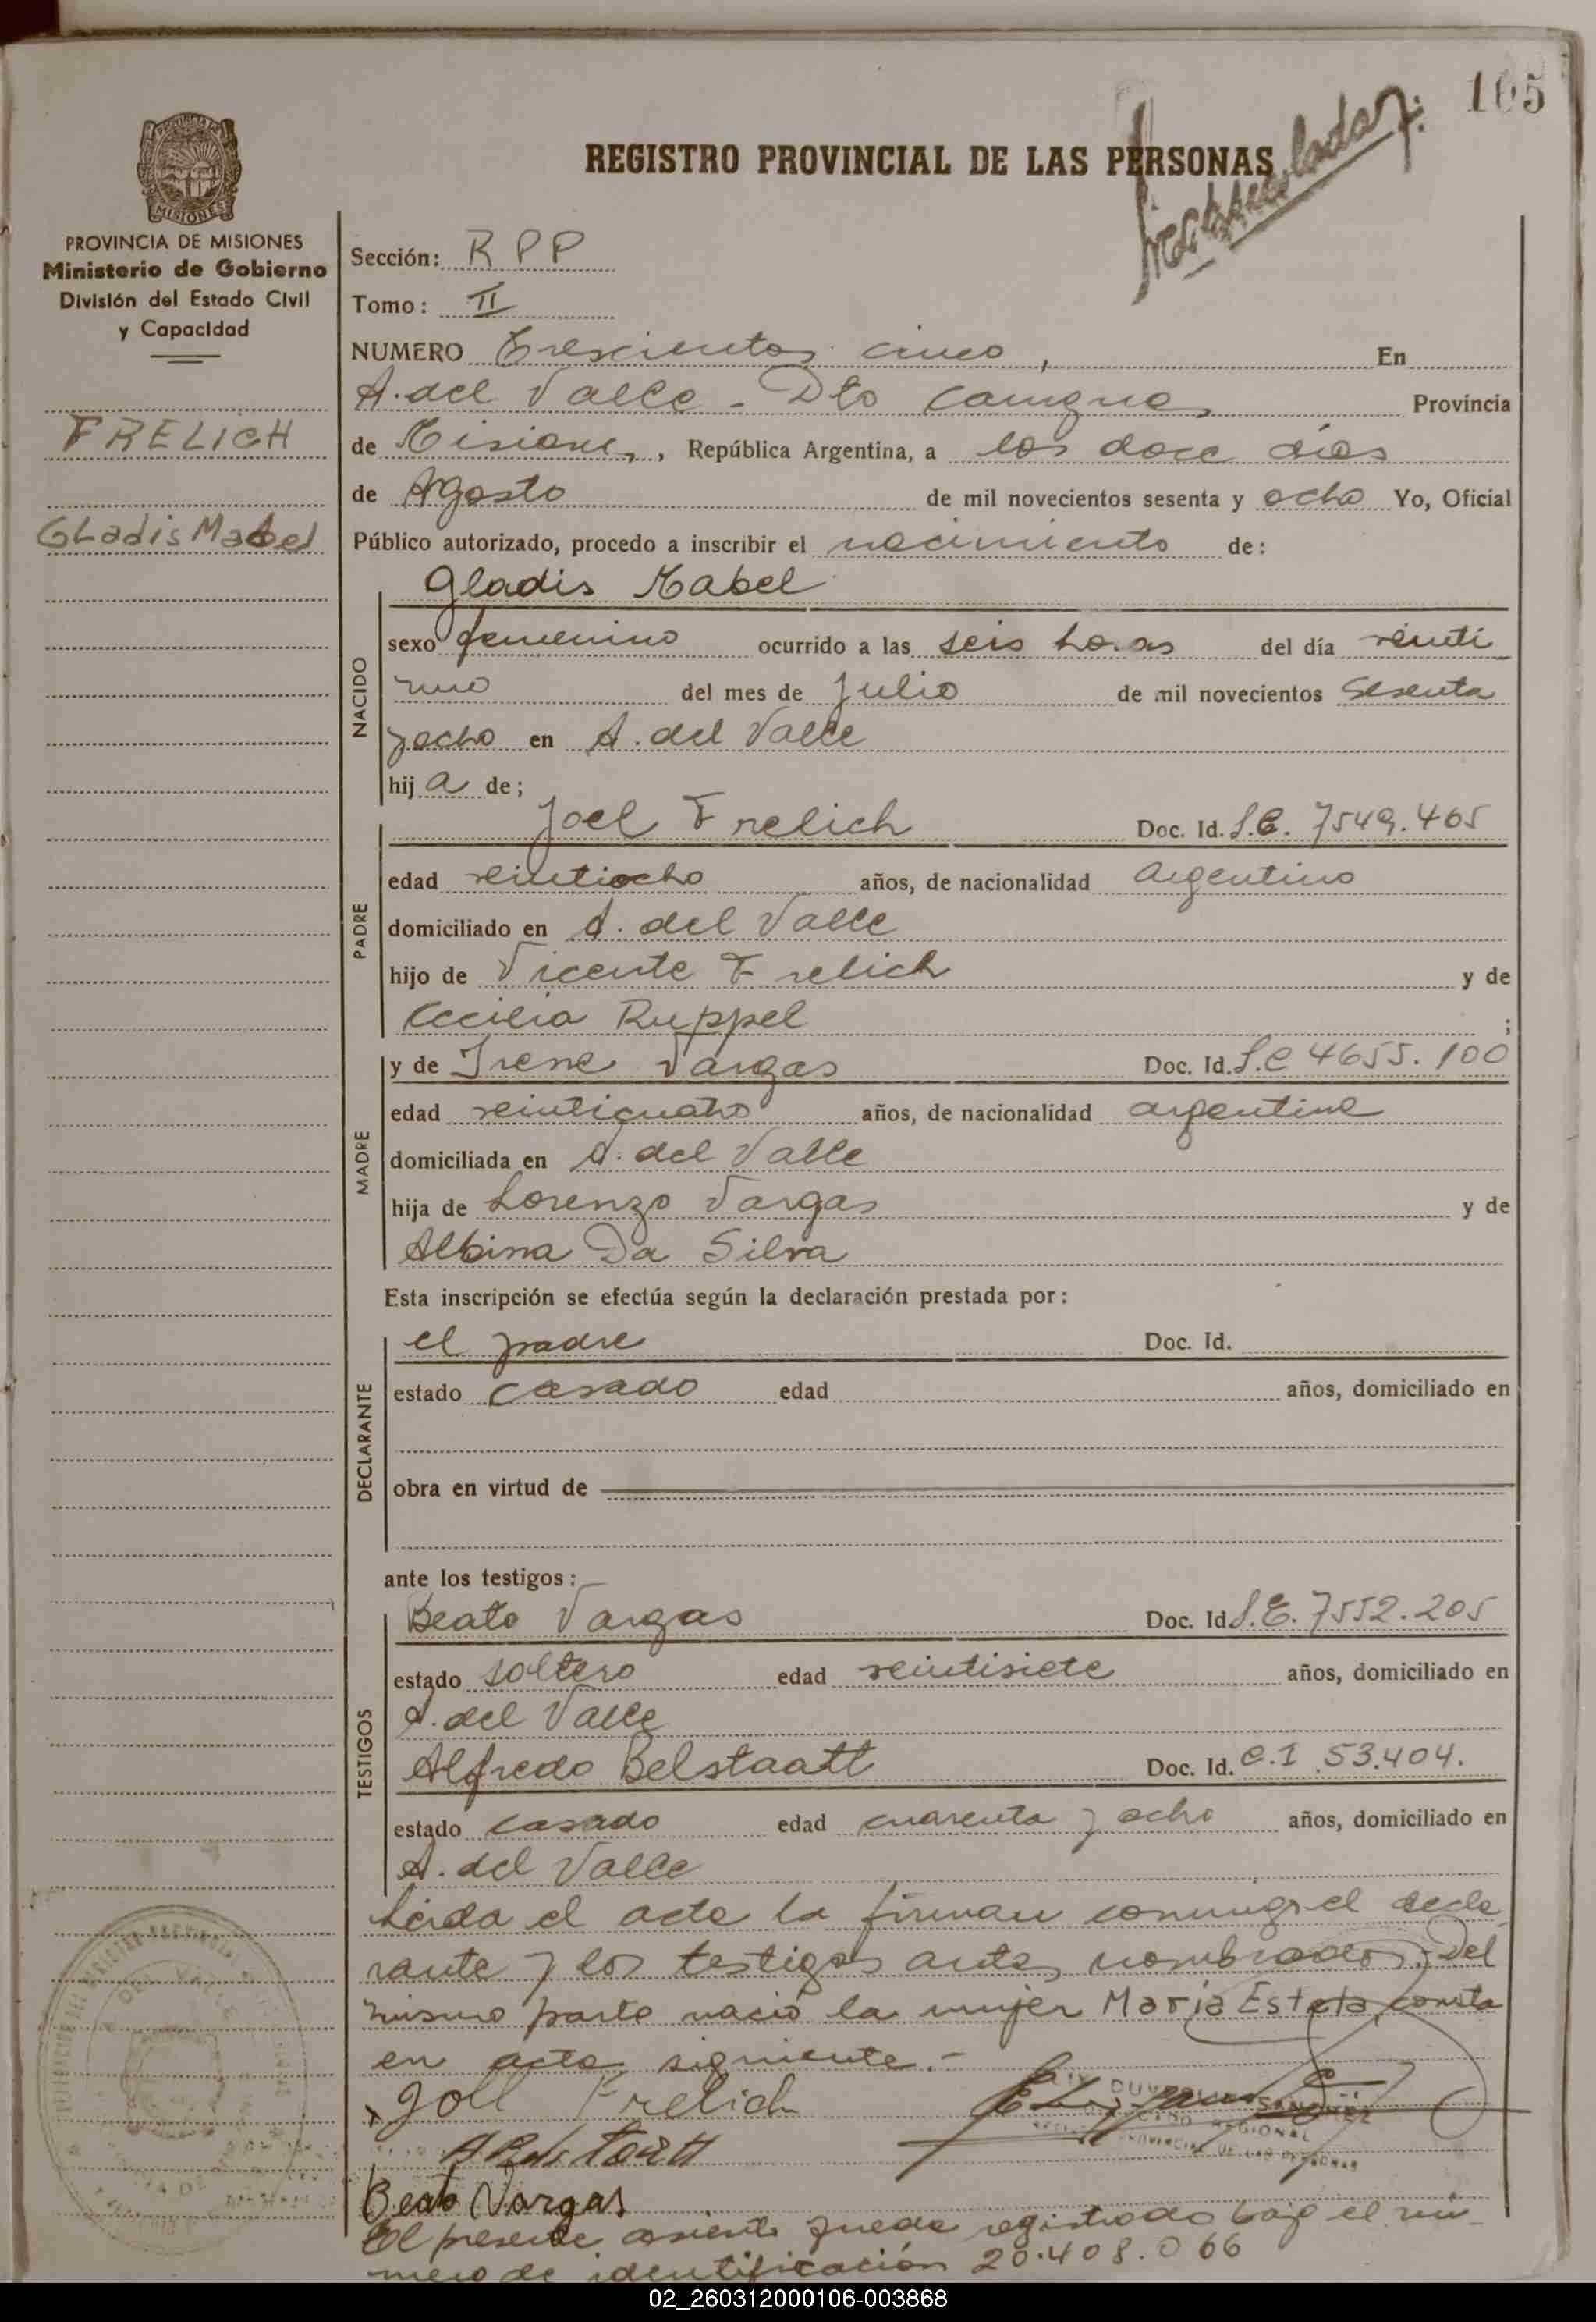 105
REGISTRO PROVINCIAL DE LAS PERSONAS
PROVINCIA DE MISIONES
Ministerio de Gobierno
División del Estado Civil
y Capacidad
FRELICH
GLadis Mabel
Sección: R P P
Tomo: II
NUMERO Trescientos cinco, En
A. del Valle - Dto Cainguas Provincia
de Misiones, República Argentina, a los doce días
de Agosto de mil novecientos sesenta y ocho Yo, Oficial
Público autorizado, procedo a inscribir el nacimiento de:
Gladis Mabel
NACIDO
sexo femenino ocurrido a las seis horas del día veinti
uno del mes de Julio de mil novecientos sesenta
y ocho en A. del Valle
hij a de;
PADRE
Joel Frelich Doc. Id. L.E. 7549.465
edad veintiocho años, de nacionalidad argentino
domiciliado en A. del Valle
hijo de Vicente Frelich y de
Cecilia Ruppel ;
MADRE
y de Irene Vargas Doc. Id. L.C 4655.100
edad veinticuatro años, de nacionalidad argentina
domiciliada en A. del Valle
hija de Lorenzo Vargas y de
Albina Da Silva
Esta inscripción se efectúa según la declaración prestada por:
DECLARANTE
el padre Doc. Id.
estado casado edad años, domiciliado en
obra en virtud de
ante los testigos:
TESTIGOS
Beato Vargas Doc. Id. L.E. 7552.205
estado soltero edad veintisiete años, domiciliado en
A. del Valle
Alfredo Belstaatt Doc. Id. C.I 53.404.
estado casado edad cuarenta y ocho años, domiciliado en
A. del Valle
Leida el acta la firman conmigo el decla
rante y los testigos antes nombrados. Del
mismo parto nació la mujer María Estela consta
en acta siguiente.-
Joel Frelich
Beato Vargas
El presente asiento queda registrado bajo el nú-
mero de identificación 20.408.066
02_260312000106-003868